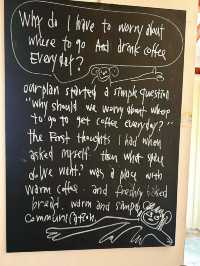 Why do I have to worry about
where to go And drink coffee
Everyday?
our plan started a simple question
"why should we worry about where
to go to get coffee everyday?"
the First thoughts I had when
asked myself. then what space
do we want? was a place with
warm coffee. and freshly baked
bread. warm and simple
communication.